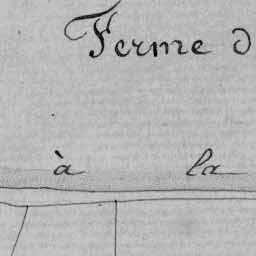 Ferme d
à la